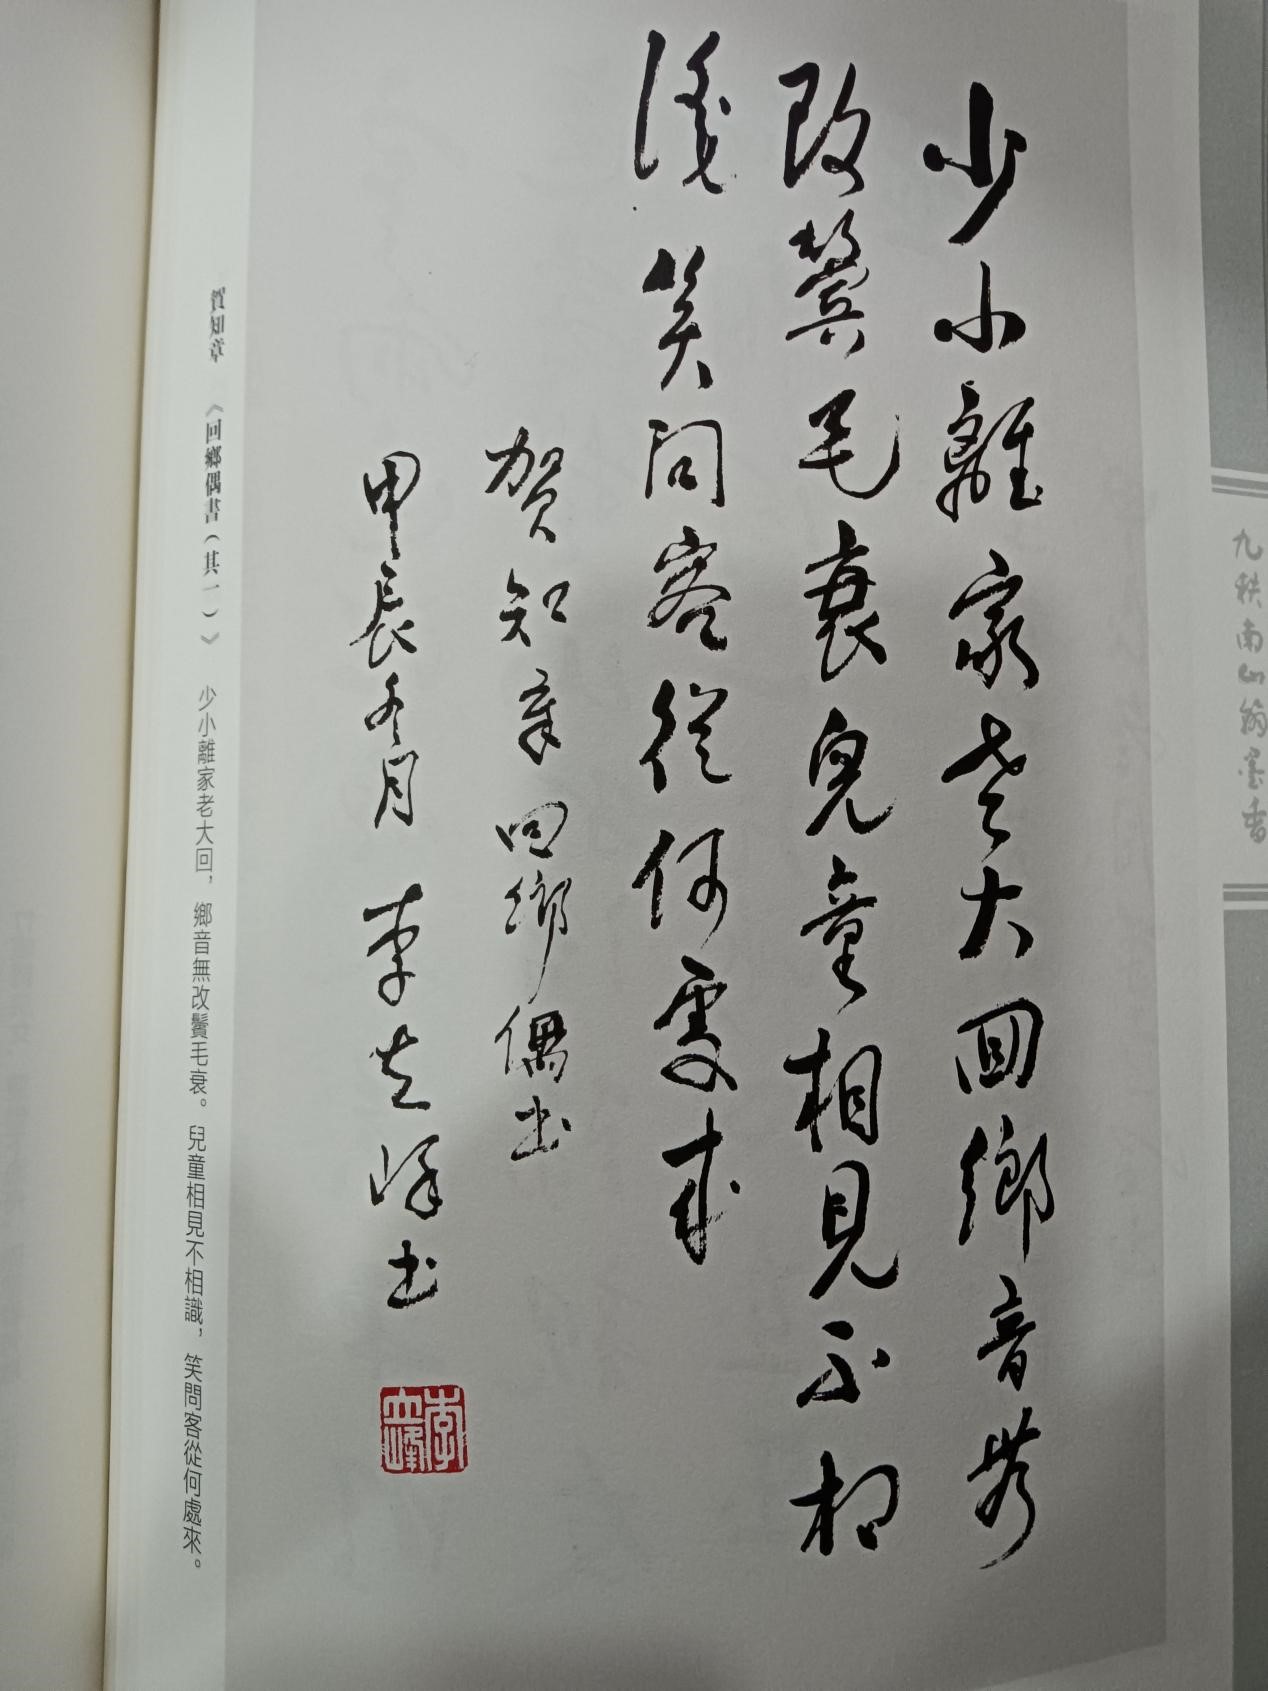 九秩南山翰墨香
少小離家老大回鄉音無
改鬢毛衰兒童相見不相
識笑問客從何處來
贺知章回鄉偶书
甲辰冬月 李峰书
賀知章 《回鄉偶書（其一）》 少小離家老大回，鄉音無改鬢毛衰。兒童相見不相識，笑問客從何處來。